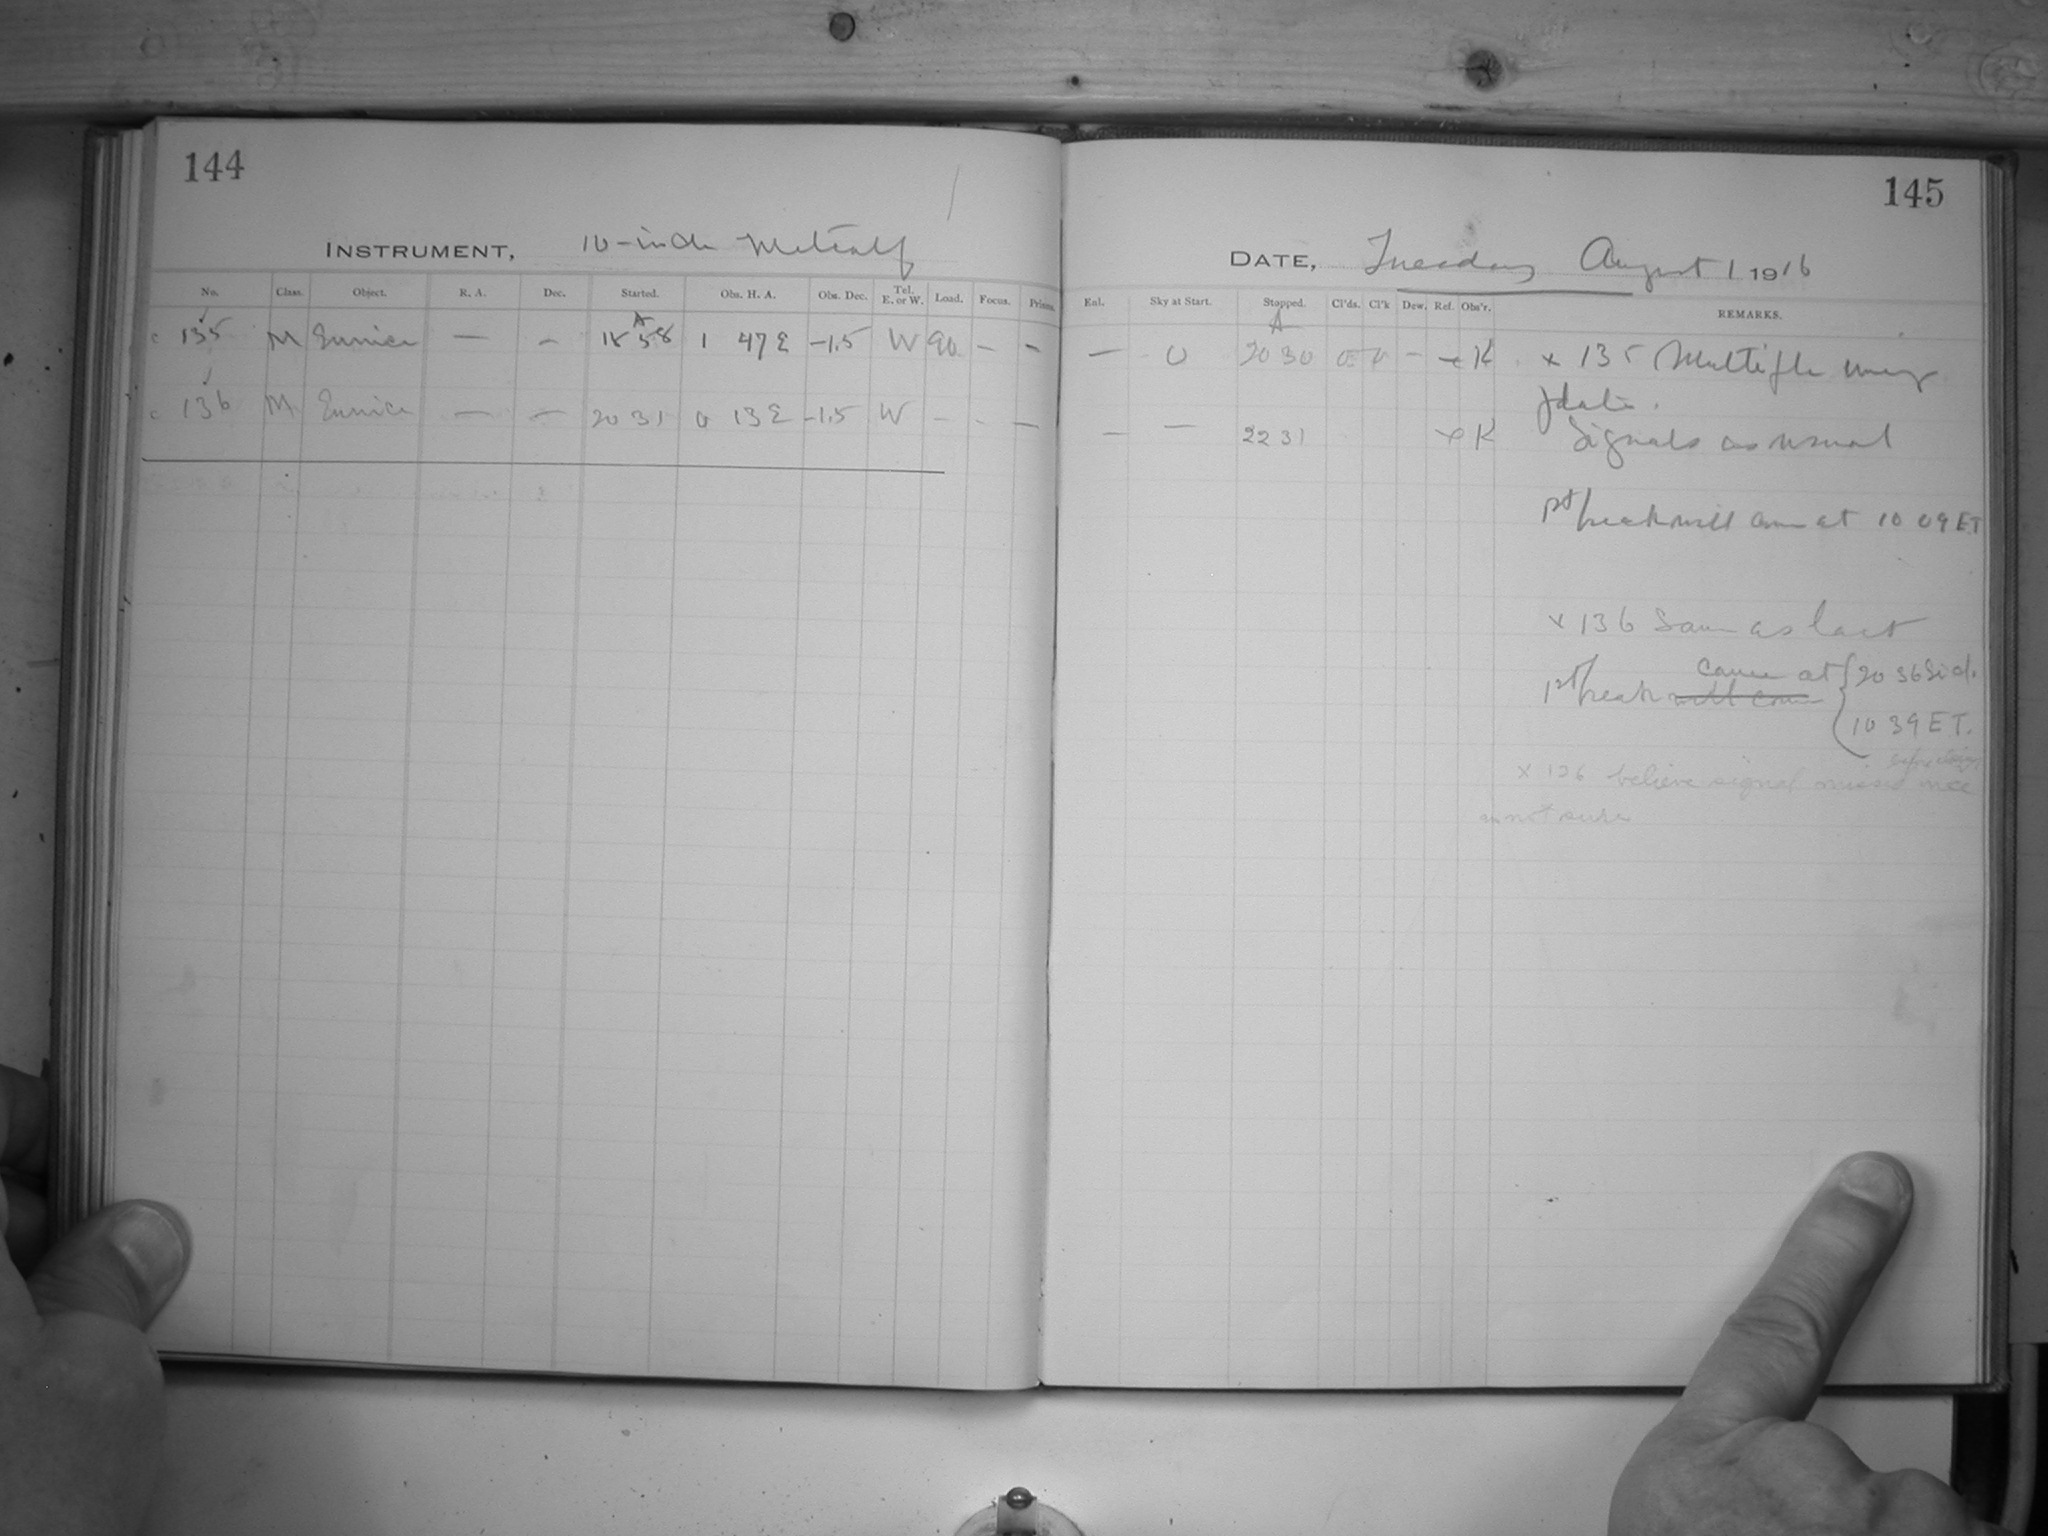 144
INSTRUMENT, 10-inch Metcalf
No. Class. Object. R. A. Dec. Started. Obs. H. A. Obs. Dec. Tel. E. or W. Load. Focus. Prisms.
c 135 M Eunice — — 18 58 1 47 E -1.5 W 90 — —
c 136 M Eunice — — 20 31 0 13 E -1.5 W — - —
145
DATE, Tuesday August 1 1916
Enl. Sky at Start. Stopped. Cl'ds. Cl'k Dew. Ref. Obs'r. REMARKS.
— 0 20 30 0 — K x 135 Multiple
plate.
— — 22 31 K Signals as usual
1st break will come at 10 09 ET
x 136 Same as last
came at 20 36 Sid.
1st break will come
10 39 ET.
x 136 believe signal missed
not sure